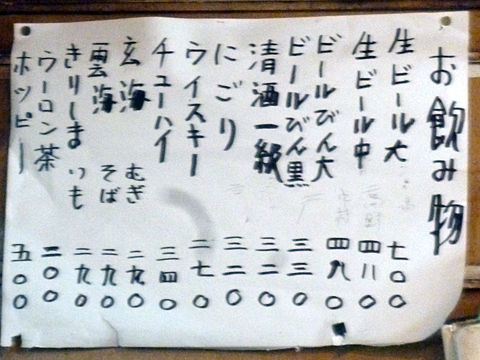 お飲み物
生ビール大 七〇〇
生ビール中 四八〇
ビールびん大 四九〇
ビールびん黒 三三〇
清酒一級 三二〇
にごり 三二〇
ウイスキー 二七〇
チューハイ 三四〇
玄海 むぎ 二九〇
雲海 そば 二九〇
きりしま いも 二九〇
ウーロン茶 二〇〇
ホッピー 五〇〇